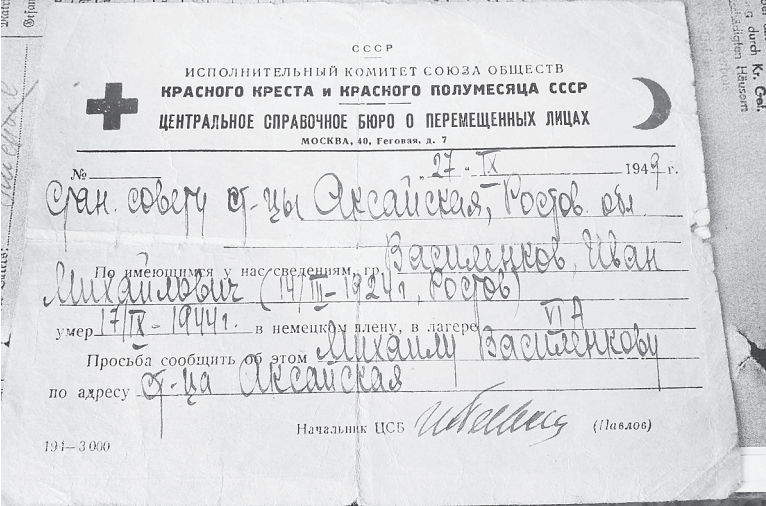 СССР
ИСПОЛНИТЕЛЬНЫЙ КОМИТЕТ СОЮЗА ОБЩЕСТВ
КРАСНОГО КРЕСТА и КРАСНОГО ПОЛУМЕСЯЦА СССР
ЦЕНТРАЛЬНОЕ СПРАВОЧНОЕ БЮРО О ПЕРЕМЕЩЕННЫХ ЛИЦАХ
МОСКВА, 40, Беговая, д. 7
№ „27" IX 1949 г.
Стан. совету ст-цы Аксайская, Ростов. обл.
По имеющимся у нас сведениям, гр. Василенков, Иван
Михайлович (14/III-1924 г., Ростов)
умер 17/IX-1944 г. в немецком плену, в лагере VI A
Просьба сообщить об этом Михаилу Василенкову
по адресу ст-ца Аксайская
Начальник ЦСБ (Павлов)
194—3000
durch Kr. Gef.
digten Häusern